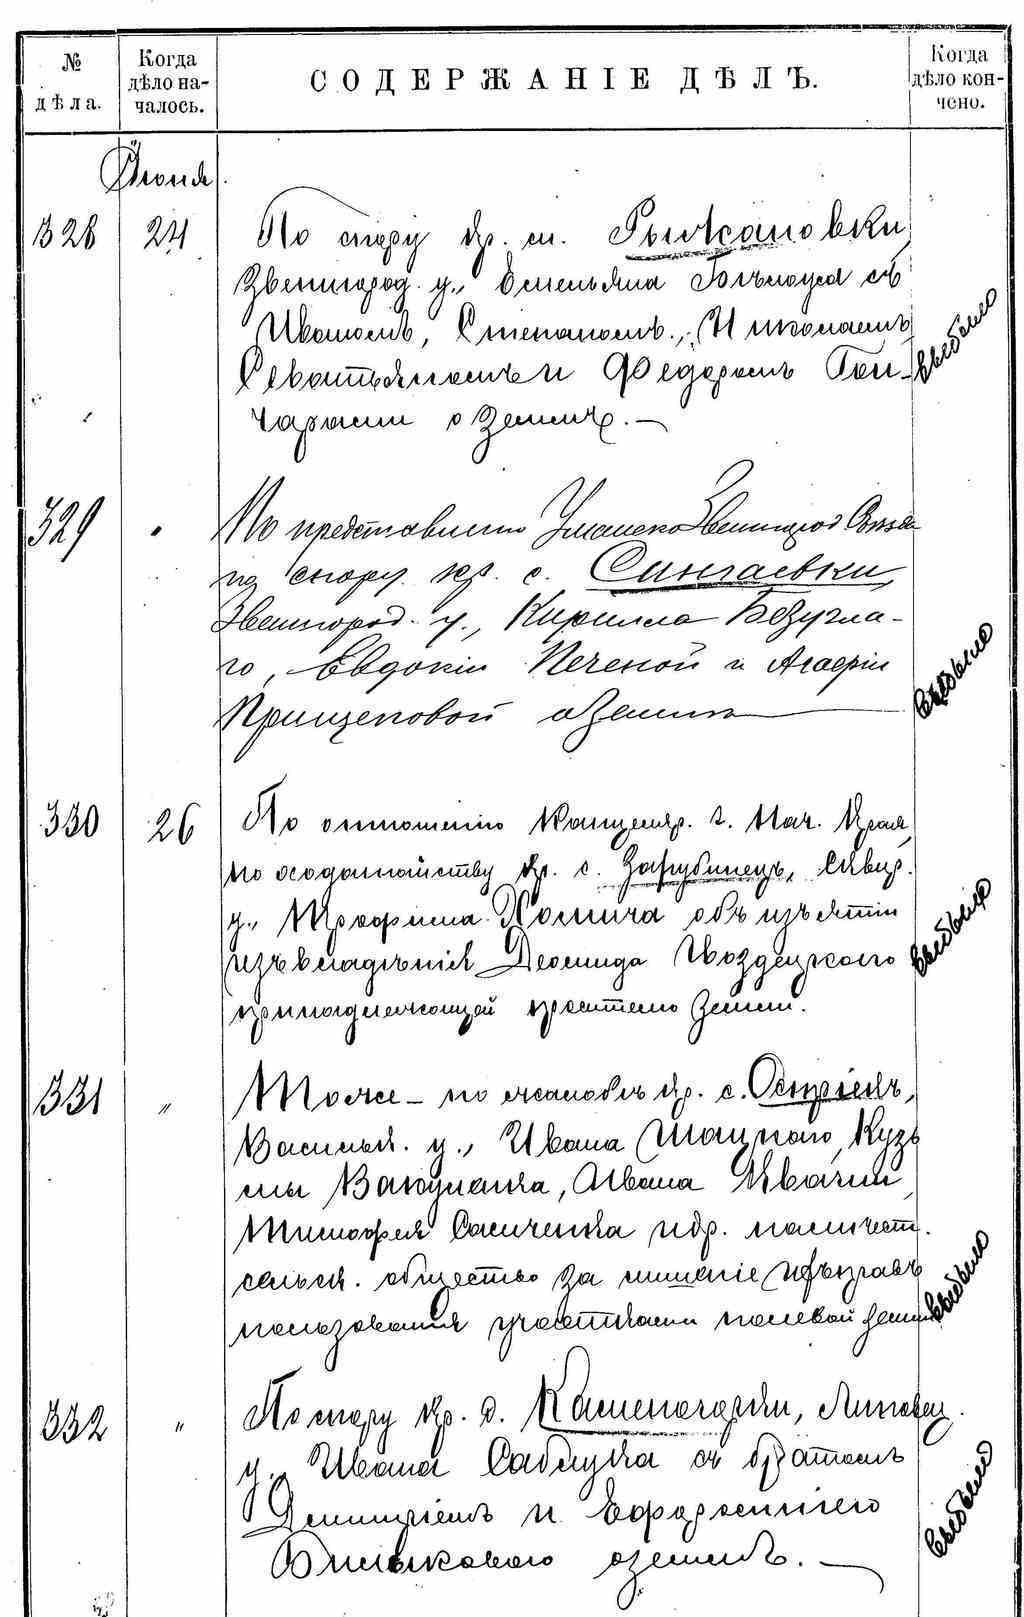 № дѣла.
Когда дѣло на-
чалось.
СОДЕРЖАНІЕ ДѢЛЪ.
Когда дѣло кон-
чено.
Іюня
328 24 По спору кр. м. Рыжановки
Звенигород. у., Емельяна с
Иваномъ, Степаномъ, Николаемъ,
Севастьяномъ и Федоромъ Гон-
чарами о землѣ.
выбыло
329 " По представленію Уманско Звенигород
по спору кр. с.
Звенигород. у., Кирилла Безугла-
го, Евдокіи Печеной и Агафіи
Прищеповой о землѣ
выбыло
330 26 По отношенію Канцеляр. Г. Нач. Края,
по ходатайству кр. с. Зарубинецъ, Сквир.
у., Трофима Хомича объ изъятіи
изъ владѣнія Діомида Гвоздецкого
принадлежащей просителю земли.
выбыло
331 " Тоже – по жалобѣ кр. с. Острієкъ,
Васильк. у., Ивана Шацкаго, Кузь
мы Вакуланка, Ивана Квачии,
Тимофея Самченка и др. на мѣст.
сельск. общество за лишеніе ихъ правъ
пользованія участками полевой земли
выбыло
332 " По спору кр. д. Каменогорки, Липовец.
у. Ивана Саблука съ братомъ
Дмитріемъ и Ефросиніею
о землѣ.
выбыло